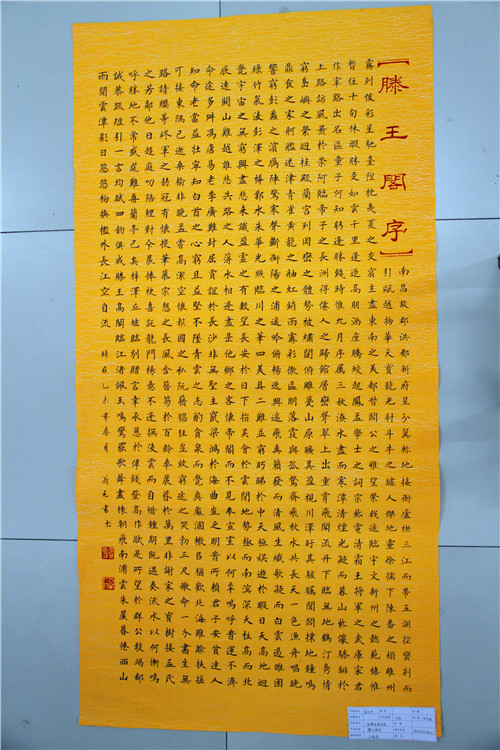 【滕王閣序】
南昌故郡洪都新府星分翼軫地接衡廬襟三江而帶五湖控蠻荊而
引甌越物華天寶龍光射斗牛之墟人傑地靈徐孺下陳蕃之榻雄州
霧列俊彩星馳臺隍枕夷夏之交賓主盡東南之美都督閻公之雅望棨戟遙臨宇文新州之懿範襜惟
暫住十旬休暇勝友如雲千里逢迎高朋滿座騰蛟起鳳孟學士之詞宗紫電清霜王將軍之武庫家君
作宰路出名區童子何知躬逢勝餞時惟九月序屬三秋潦水盡而寒潭清煙光凝而暮山紫儼驂騑於
上路訪風景於崇阿臨帝子之長洲得僊人之館層巒聳翠上出重霄飛閣流丹下臨無地鶴汀鳧
窮島嶼之縈迴桂殿蘭宮列岡巒之體勢披繡闥俯雕甍山原曠其盈視川澤盱其駭矚閭閻撲地鐘鳴
鼎食之家舸艦迷津青雀黃龍之舳虹銷雨霽彩徹區明落霞與孤鶩齊飛秋水共長天一色漁舟唱晚
響窮彭蠡之濱雁陣驚寒聲斷衡陽之浦遙吟俯暢逸興遄飛爽籟發而清風生纖歌凝而白雲遏睢園
綠竹氣淩彭澤之樽鄴水朱華光照臨川之筆四美具二難並窮睇眄於中天極娛遊於暇日天高地迥
覺宇宙之無窮興盡悲來識盈虛之有數望長安於日下指吳會於雲間地勢極而南溟深天柱高而北
辰遠關山難越誰悲失路之人萍水相逢盡是他鄉之客懷帝閽而不見奉宣室以何年嗚呼時運不濟
命途多舛馮唐易老李廣難封屈賈誼於長沙非無聖主竄梁鴻於海曲豈乏明時所賴君子安貧達人
知命老當益壯寧知白首之心窮且益堅不墜青雲之志酌貪泉而覺爽處涸轍猶歡北海雖賒扶搖
可接東隅已逝桑榆非晚孟嘗高潔空懷報國之心阮籍猖狂豈效窮途之哭勃三尺微命一介書生無
路請纓等終軍之弱冠有懷投筆慕宗愨之長風舍簪笏於百齡奉晨昏於萬里非謝家之寶樹接孟氏
之芳鄰他日趨庭叨陪鯉對今晨捧袂喜託龍門楊意不逢撫淩雲而自惜鍾期既遇奏流水以何慚嗚
呼勝地不常盛筵難再蘭亭已矣梓澤丘墟臨別贈言幸承恩於偉餞登高作賦是所望於群公敢竭鄙
誠恭疏短引一言均賦四韻俱成滕王高閣臨江渚佩玉鳴鸞罷歌舞畫棟朝飛南浦雲朱簾暮卷西山
雨閒雲潭影日悠悠物換檻外長江空自流 時在乙未年春月